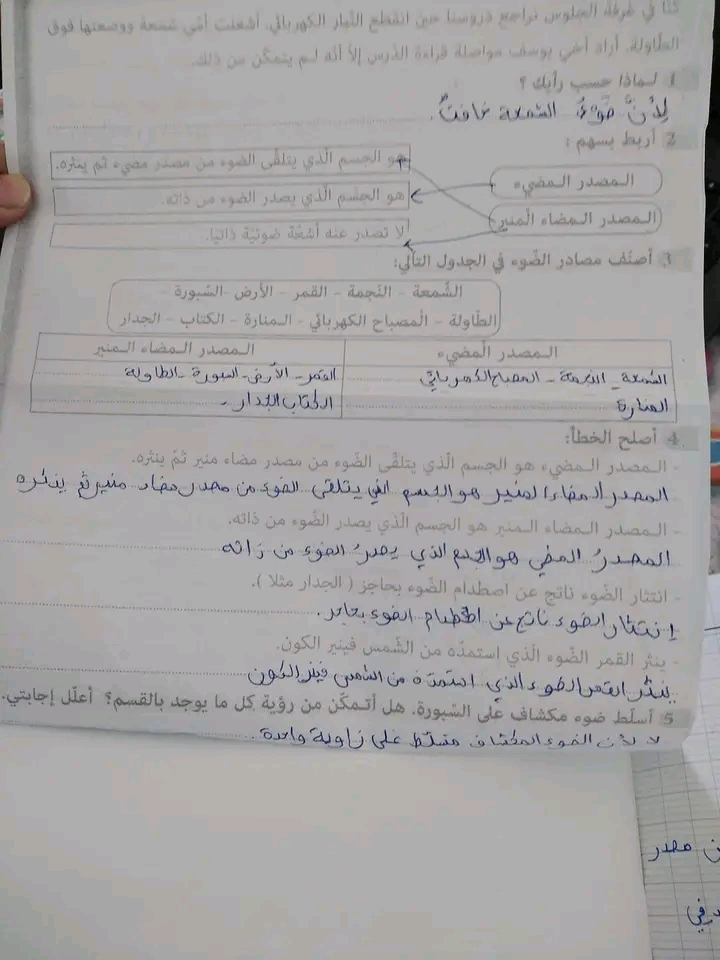 كنا في غرفة الجلوس نراجع دروسنا حين انقطع التيار الكهربائي. أشعلت أمي شمعة ووضعتها فوق
الطاولة. أراد أخي يوسف مواصلة قراءة الدرس إلا أنه لم يتمكن من ذلك.
1 لماذا حسب رأيك ؟
لِأَنَّ ضَوْءَ الشمعة خافتٌ.
2 أربط بسهم :
هو الجسم الّذي يتلقّى الضّوء من مصدر مضيء ثم ينثره.
المصدر المضيء
هو الجسم الّذي يصدر الضّوء من ذاته.
المصدر المضاء المنير
لا تصدر عنه أشعّة ضوئيّة ذاتيا.
3 أصنّف مصادر الضّوء في الجدول التّالي:
الشّمعة - النّجمة - القمر - الأرض - السّبورة -
الطّاولة - المصباح الكهربائي - المنارة - الكتاب - الجدار
المصدر المضيء
المصدر المضاء المنير
الشمعة - النجمة - المصباح الكهربائي
القمر - الأرض - السبورة - الطاولة
المنارة
الكتاب الجدار -
4 أصلح الخطأ:
- المصدر المضيء هو الجسم الّذي يتلقّى الضّوء من مصدر مضاء منير ثمّ ينثره.
المصدر المضاء المنير هو الجسم الذي يتلقى الضوء من مصدر مضاء منير ثم ينثره
- المصدر المضاء المنير هو الجسم الّذي يصدر الضّوء من ذاته.
المصدرُ المضي هو الجسم الذي يصدرُ الضوء من ذاته
- انتثار الضّوء ناتج عن اصطدام الضّوء بحاجز ( الجدار مثلا ).
إنتثار الضوء ناتج عن اصطدام الضوء بحاجز.
- ينثر القمر الضّوء الّذي استمدّه من الشّمس فينير الكون.
ينثر القمر الضوء الذي استمدّه من الشمس فينير الكون
5 أسلّط ضوء مكشاف على السّبورة. هل أتمكّن من رؤية كل ما يوجد بالقسم؟ أعلّل إجابتي.
لا لأن الضوء المكشاف مسلّط على زاوية واحدة.
ن مصدر